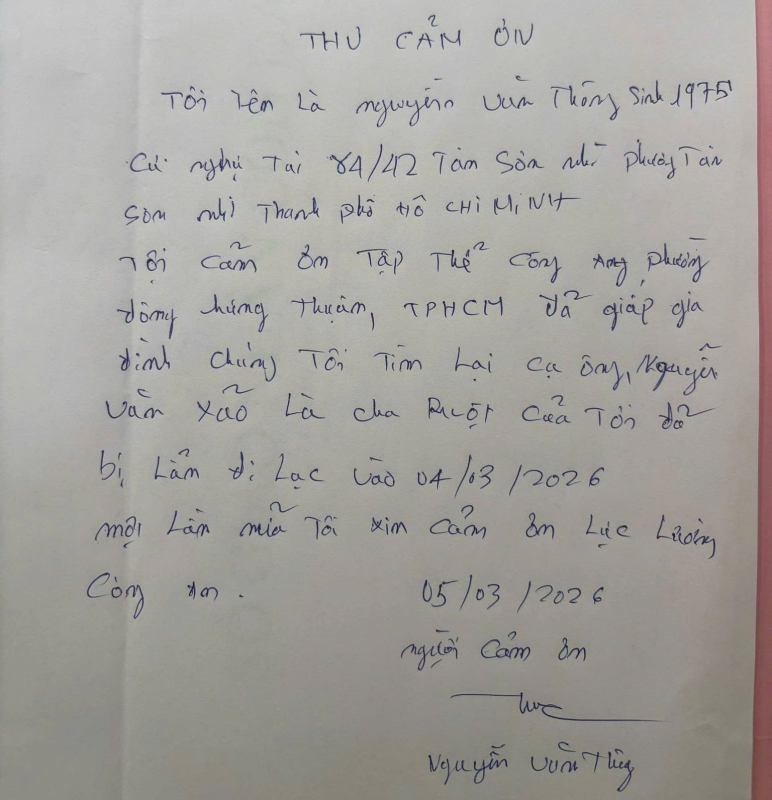 THƯ CẢM ƠN
Tôi tên là nguyễn văn Thông Sinh 1975
Cư ngụ Tại 84/42 Tân Sơn nhì phường Tân
Sơn nhì Thành phố HỒ CHÍ MINH
Tôi cảm ơn Tập Thể Công An, phường
đông hưng Thuận, TPHCM đã giáp gia
đình chúng Tôi Tìm Lại cụ ông, Nguyễn
văn xão Là cha Ruột Của Tôi đã
bị Lẩn đi Lạc vào 04/03/2026
một Lần nữa Tôi xin Cảm ơn Lực Lượng
Công an.
05/03/2026
người Cảm ơn
Nguyễn văn Thông